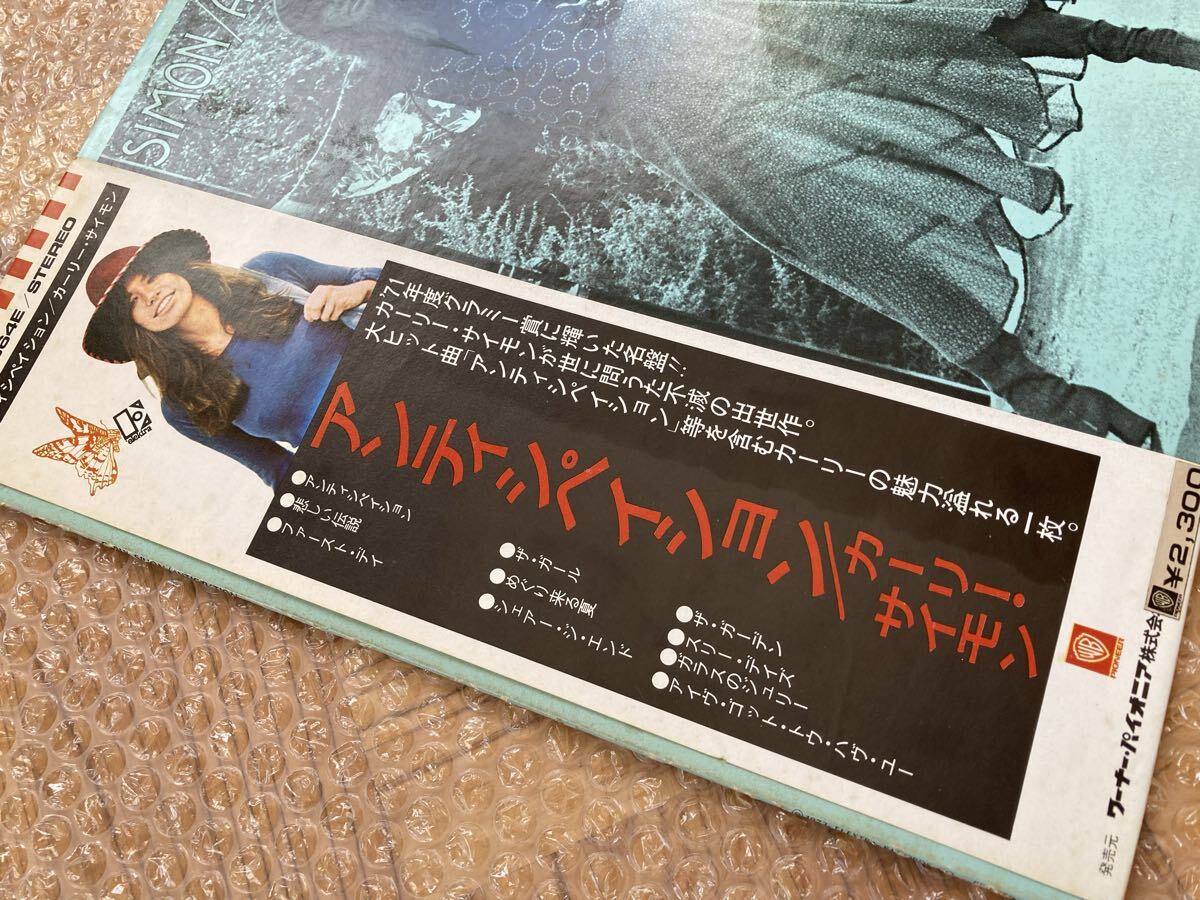 SIMON/A
564E/STEREO
イシペイション/カーリー・サイモン
elektra
'71年度グラミー賞に輝いた名盤!!
カーリー・サイモンが世に問うた不滅の出世作。
大ヒット曲「アンティシペイション」等を含むカーリーの魅力溢れる一枚。
アンティシペイション/カーリー・サイモン
●アンティシペイション
●悲しい伝説
●ファースト・デイ
●ザ・ガール
●めぐり来る夏
●シェアー・ジ・エンド
●ザ・ガーデン
●スリー・デイズ
●ガラスのジュリー
●アイヴ・ゴット・トゥ・ハヴ・ユー
PIONEER
¥2,300
発売元 ワーナー・パイオニア株式会